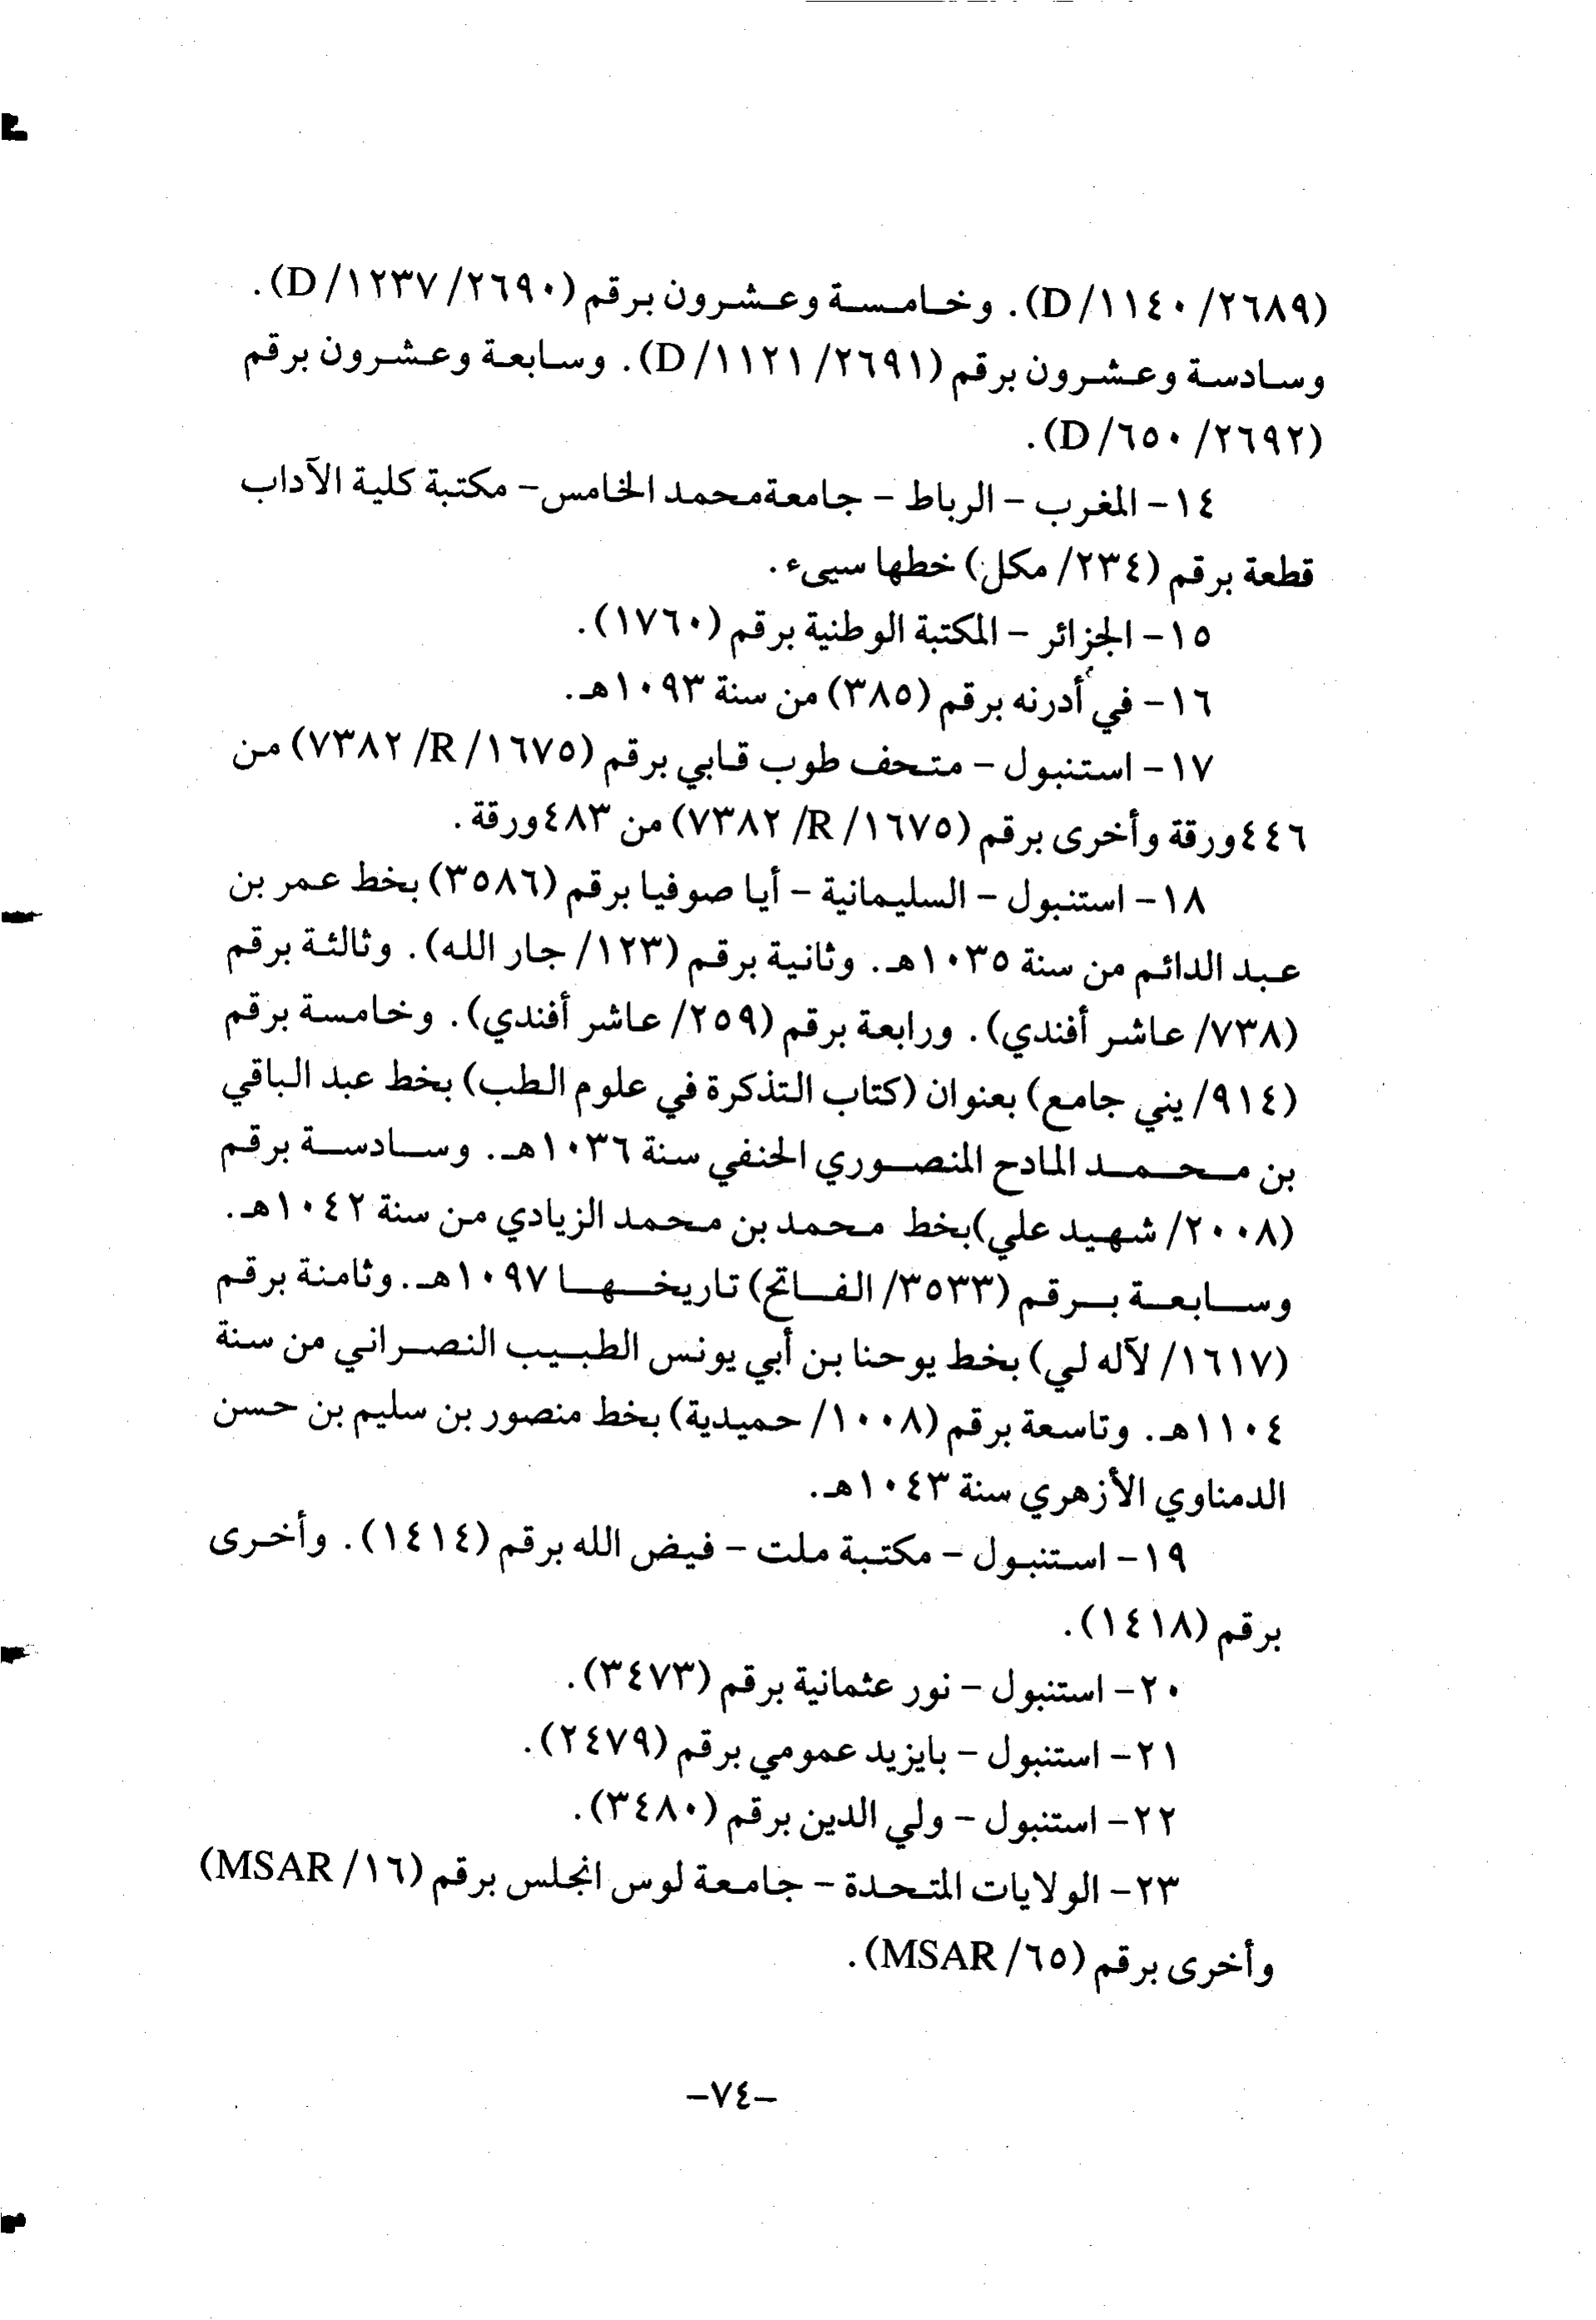 (٢٦٨٩/ ١١٤٠/D). وخامسة وعشرون برقم (٢٦٩٠/ ١٢٣٧/D).
وسادسة وعشرون برقم (٢٦٩١/ ١١٢١/D). وسابعة وعشرون برقم
(٢٦٩٢/ ٦٥٠/D).
١٤- المغرب - الرباط - جامعة محمد الخامس- مكتبة كلية الآداب
قطعة برقم (٢٣٤/ مكل) خطها سيىء.
١٥- الجزائر - المكتبة الوطنية برقم (١٧٦٠).
١٦- في أدرنه برقم (٣٨٥) من سنة ١٠٩٣هـ.
١٧- استنبول - متحف طوب قابي برقم (١٦٧٥/ R/ ٧٣٨٢) من
٤٤٦ورقة وأخرى برقم (١٦٧٥/ R/ ٧٣٨٢) من ٤٨٣ورقة.
١٨- استنبول - السليمانية - أيا صوفيا برقم (٣٥٨٦) بخط عمر بن
عبد الدائم من سنة ١٠٣٥هـ. وثانية برقم (١٢٣/ جار الله). وثالثة برقم
(٧٣٨/ عاشر أفندي). ورابعة برقم (٢٥٩/ عاشر أفندي). وخامسة برقم
(٩١٤/ يني جامع) بعنوان (كتاب التذكرة في علوم الطب) بخط عبد الباقي
بن محمد المادح المنصوري الحنفي سنة ١٠٣٦هـ. وسادسة برقم
(٢٠٠٨/ شهيد علي)بخط محمد بن محمد الزيادي من سنة ١٠٤٢هـ.
وسابعة برقم (٣٥٣٣/ الفاتح) تاريخها ١٠٩٧هـ. وثامنة برقم
(١٦١٧/ لآله لي) بخط يوحنا بن أبي يونس الطبيب النصراني من سنة
١١٠٤هـ. وتاسعة برقم (١٠٠٨/ حميدية) بخط منصور بن سليم بن حسن
الدمناوي الأزهري سنة ١٠٤٣هـ.
١٩- استنبول - مكتبة ملت - فيض الله برقم (١٤١٤). وأخرى
برقم (١٤١٨).
٢٠- استنبول - نور عثمانية برقم (٣٤٧٣).
٢١- استنبول - بايزيد عمومي برقم (٢٤٧٩).
٢٢- استنبول - ولي الدين برقم (٣٤٨٠).
٢٣- الولايات المتحدة - جامعة لوس انجلس برقم (١٦/ MSAR)
وأخرى برقم (٦٥/ MSAR).
-٧٤-